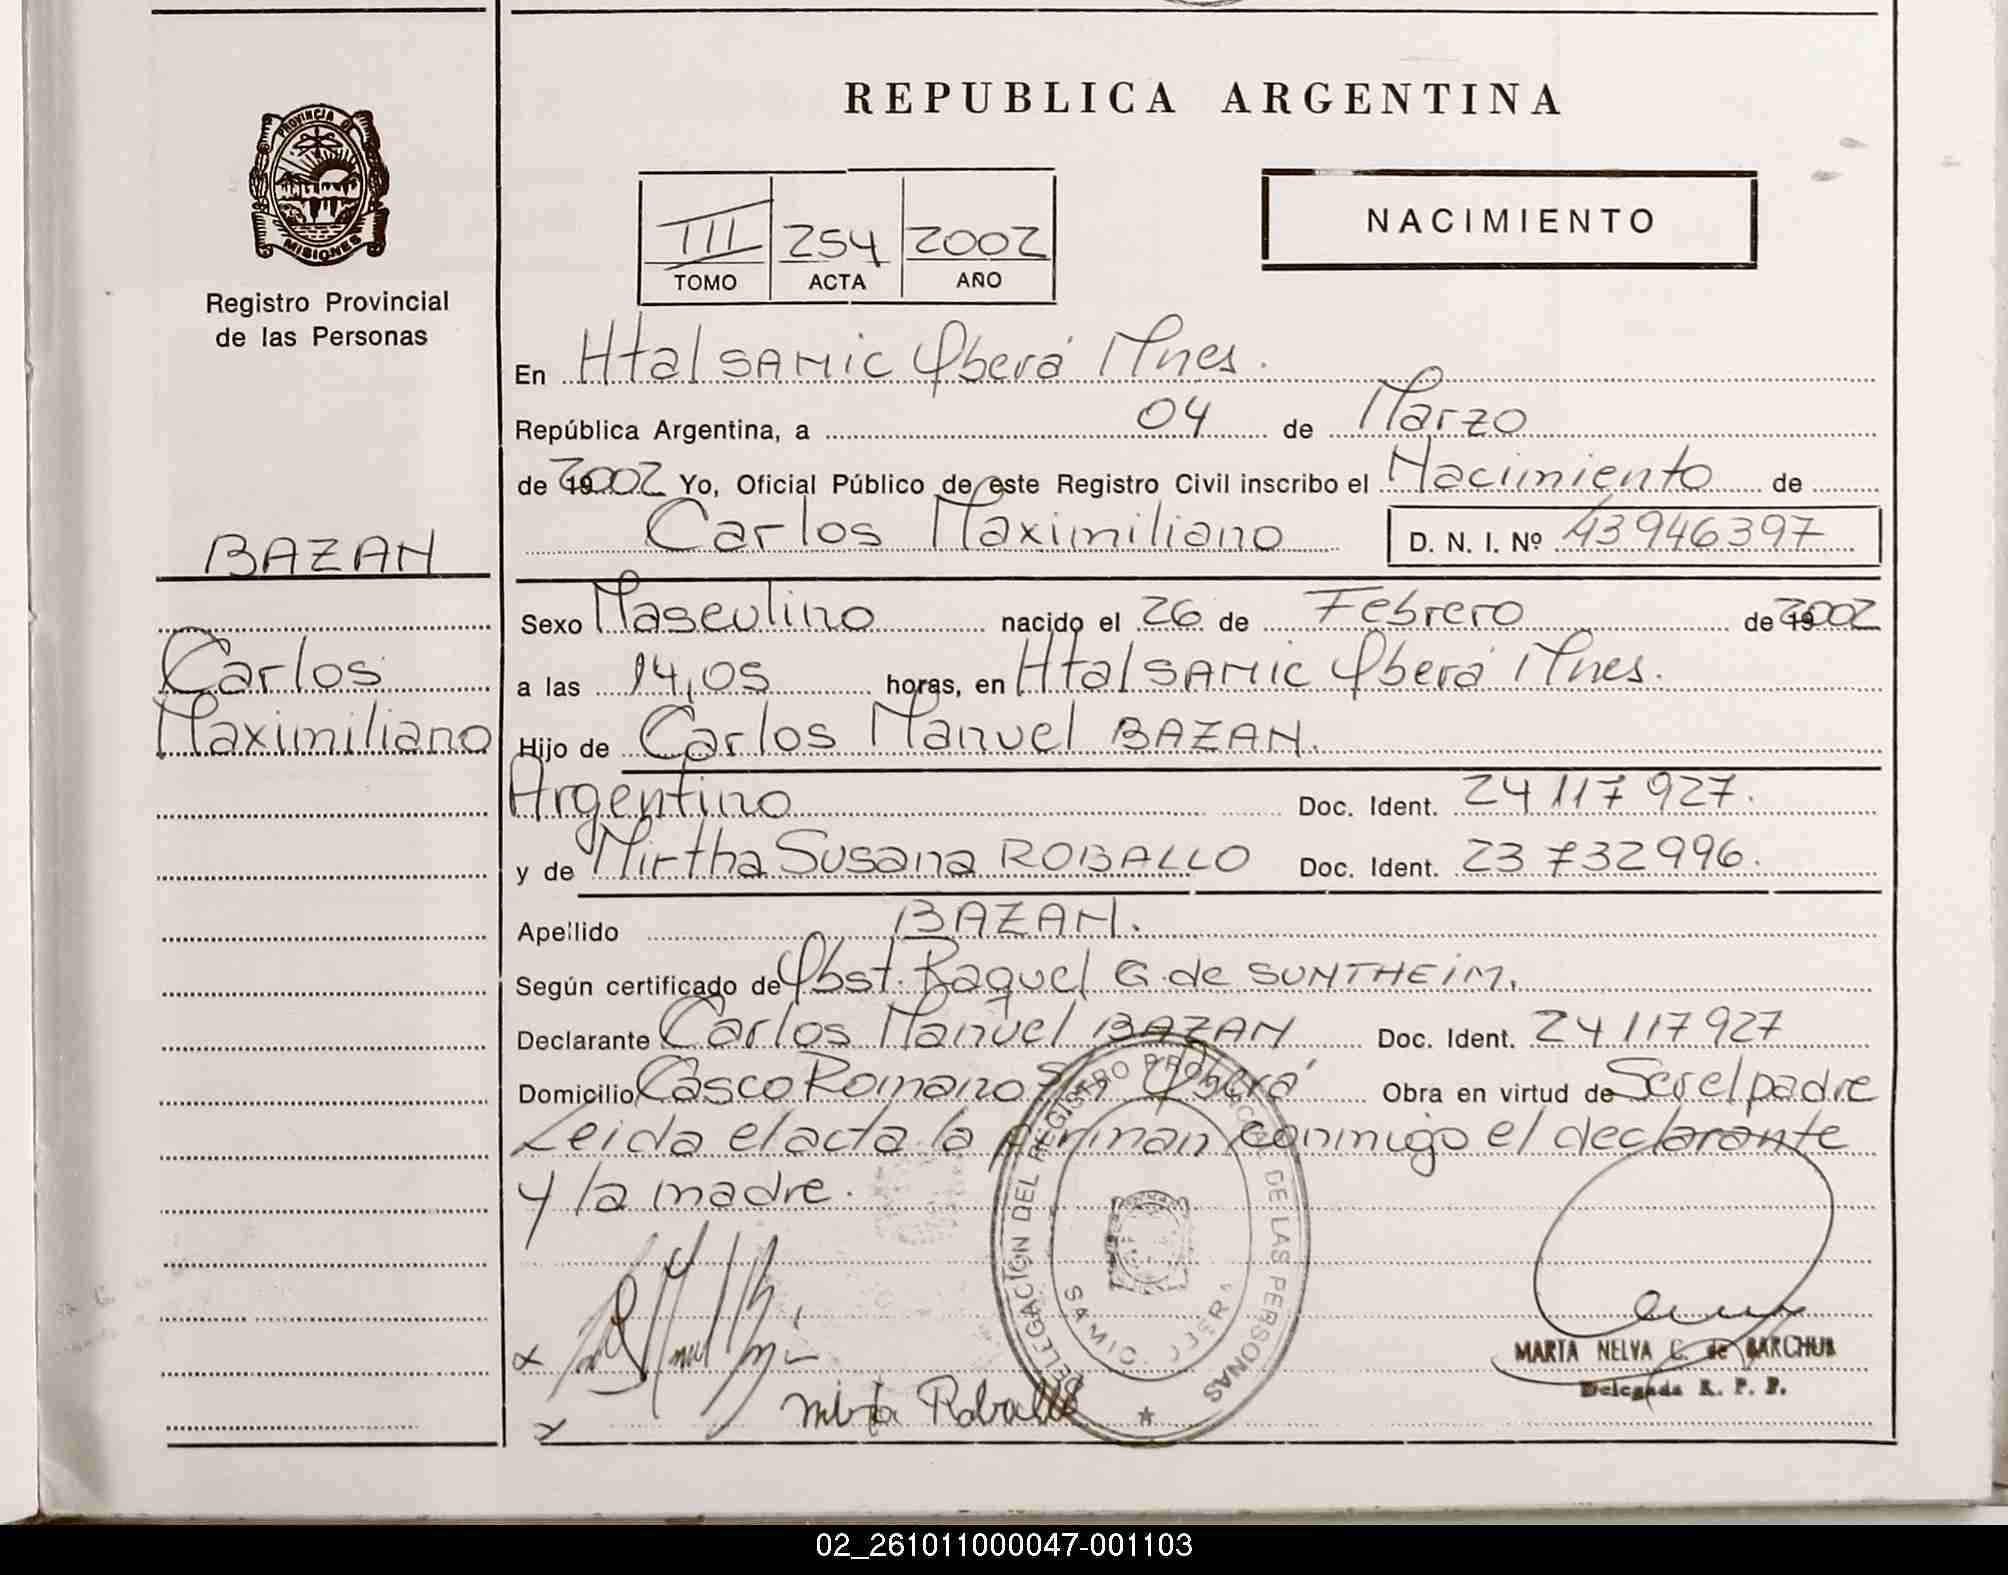 REPUBLICA ARGENTINA
PROVINCIA DE
MISIONES
Registro Provincial
de las Personas
III 254 2002
TOMO ACTA AÑO
NACIMIENTO
En Htal SAMIC Oberá Mnes.
República Argentina, a 04 de Marzo
de 2002 Yo, Oficial Público de este Registro Civil inscribo el Nacimiento de
Carlos Maximiliano D. N. I. Nº 43946397
BAZAN
Carlos
Maximiliano
Sexo Masculino nacido el 26 de Febrero de 2002
a las 14,05 horas, en Htal SAMIC Oberá Mnes.
Hijo de Carlos Manuel BAZAN.
Argentino Doc. Ident. 24 117 927.
y de Mirtha Susana ROBALLO Doc. Ident. 23 732 996.
Apellido BAZAN.
Según certificado de Obst. Raquel G. de SUNTHEIM.
Declarante Carlos Manuel BAZAN Doc. Ident. 24 117 927
Domicilio Casco Romano S/n Oberá Obra en virtud de Ser el padre
Leida el acta la firman conmigo el declarante
y la madre.
DELEGACION DEL REGISTRO PROVINCIAL DE LAS PERSONAS
SAMIC
Roballo
MARTA NELVA C. de BARCHUK
Delegada R. P. P.
02_261011000047-001103